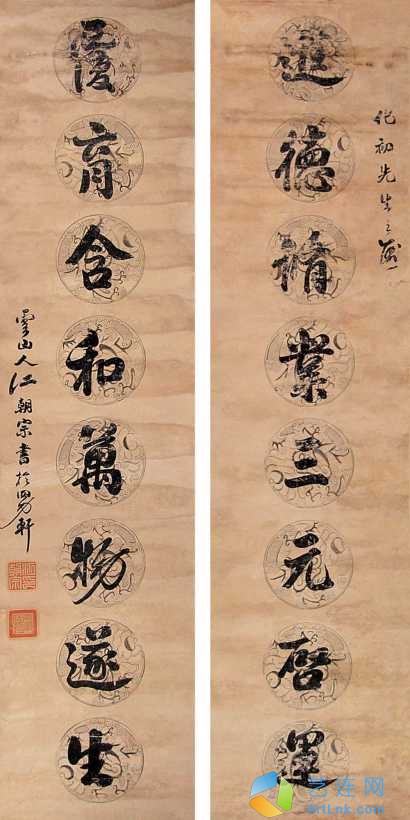 化初先生之
進德脩業三元啓運
覆育含和萬物遂生
山人江朝宗書於 軒
艺连网
ArtLnk.com